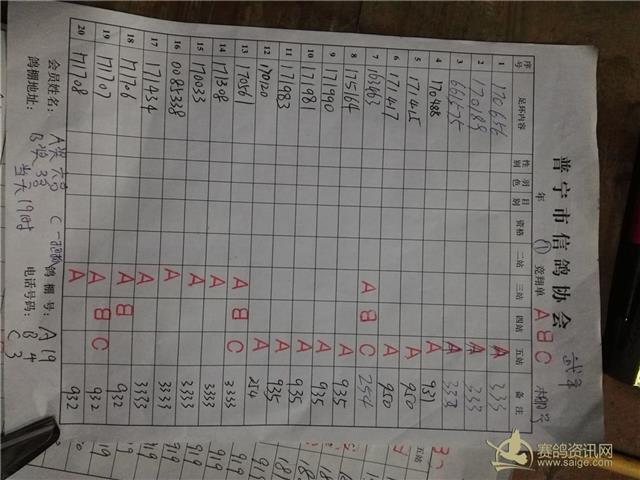 普宁市信鸽协会 武平
年 ① 竞翔单 A B C
序号 足环内容 性别 羽色 目别 资格 二站 三站 四站 五站 备注
1 170656 A 333
2 170189 A 333
3 661525 A 333
4 170488 A 937
5 171415 A 950
6 171447 A 950
7 163163 A B C 254
8 175164 A 935
9 171990 A 935
10 171981 A 935
11 171983 A 935
12 170120 A 254
13 170561 A B C 3333
14 171308 A 3333
15 170033 A 3333
16 0085338 A 3333
17 171434 A 3333
18 171706 A B 932
19 171707 A B C 932
20 171708 A 932
会员姓名: A 鸽棚号: A 19
鸽棚地址: B 当天19时 电话号码: B 4
C 3
五站
919
919
919
919
919
赛鸽资讯网
www.saige.com